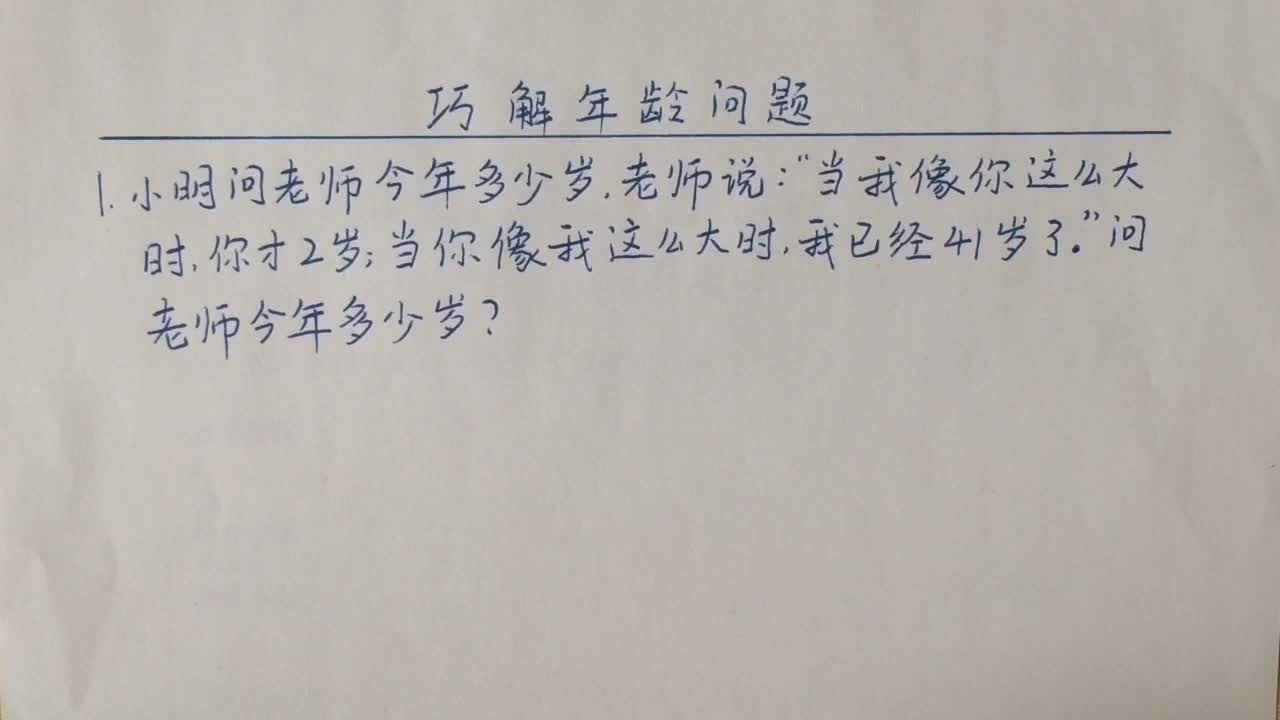 巧解年龄问题
1.小明问老师今年多少岁,老师说:“当我像你这么大
时,你才2岁;当你像我这么大时,我已经41岁了。”问
老师今年多少岁?